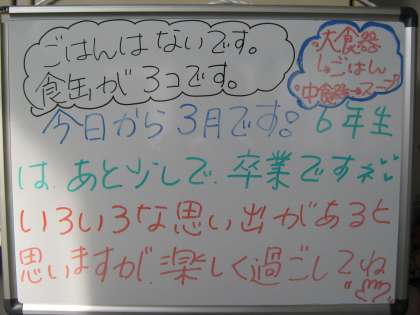 ごはんはないです。
食缶が3コです。
大食器
↳ごはん
中食器→スープ
今日から3月です。6年生
は、あと少しで、卒業ですね
いろいろな思い出があると
思いますが、楽しく過ごしてね